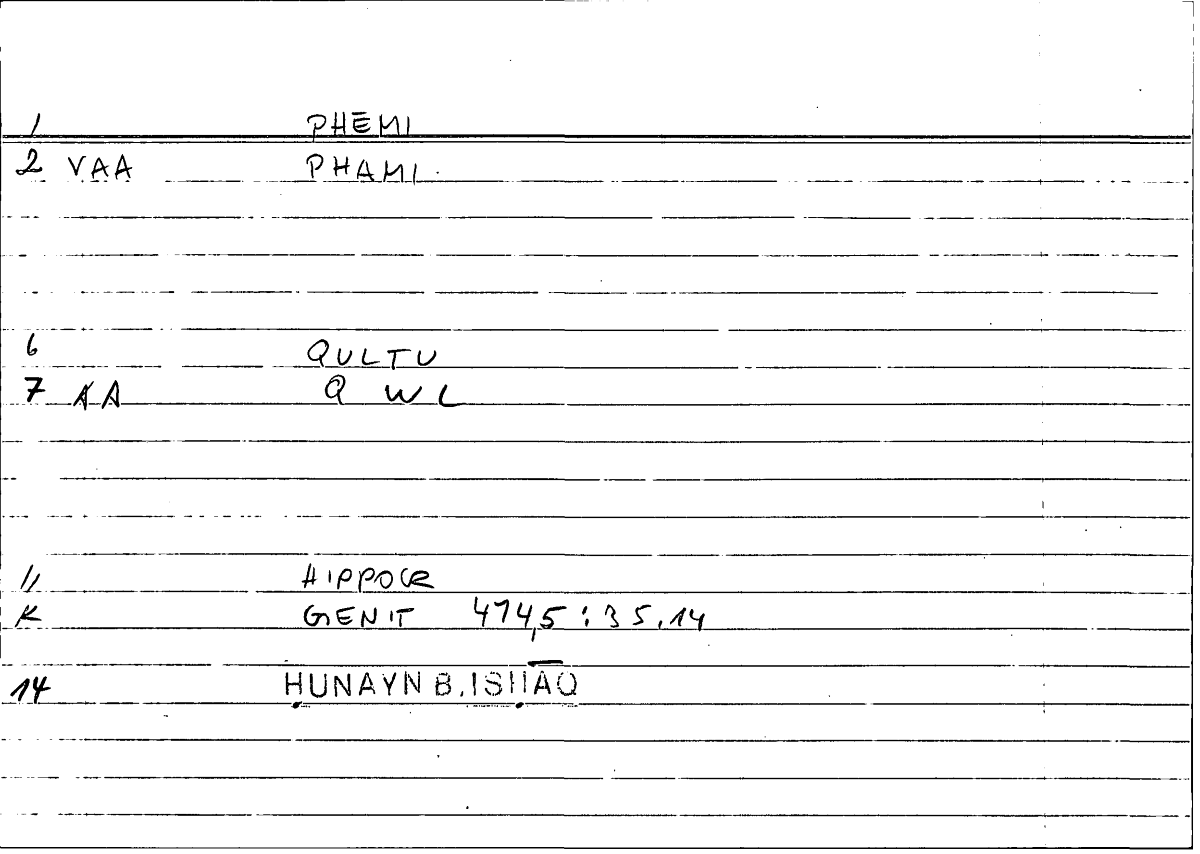 1 PHĒMI
2 VAA PHAMI
6 QULTU
7 AA Q W L
11 HIPPOCR
K GENIT 474,5 : 35.14
14 ḤUNAYN B. ISḤĀQ